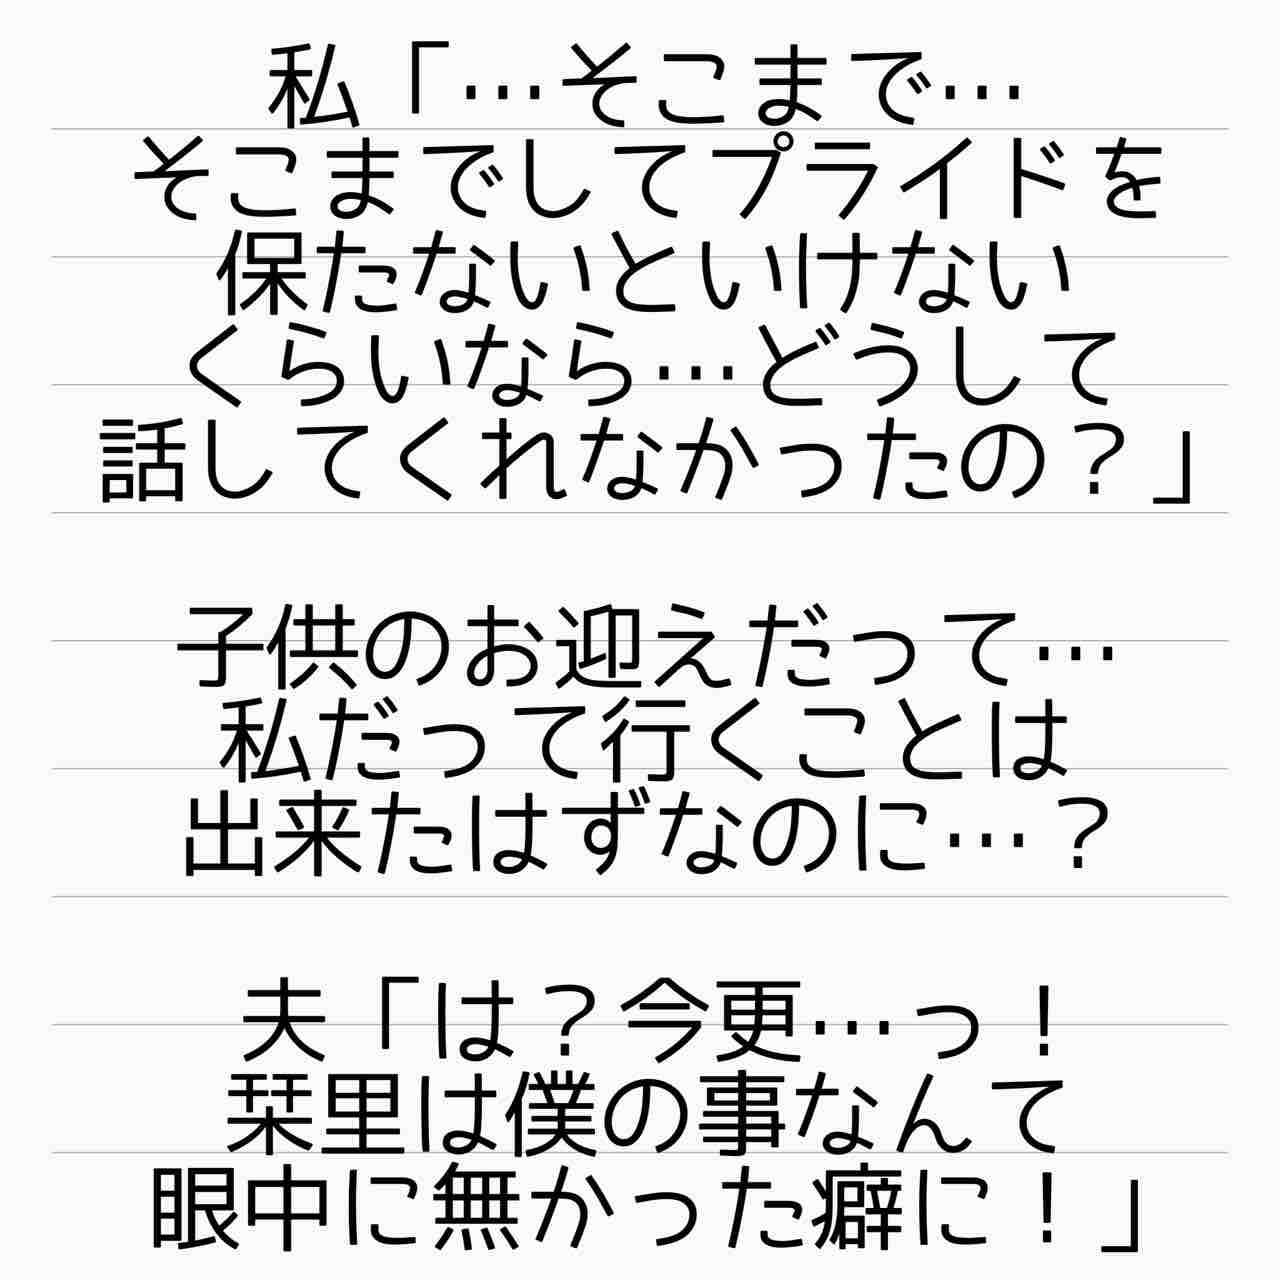 私「…そこまで…
そこまでしてプライドを
保たないといけない
くらいなら…どうして
話してくれなかったの？」
子供のお迎えだって…
私だって行くことは
出来たはずなのに…？
夫「は？今更…っ！
栞里は僕の事なんて
眼中に無かった癖に！」